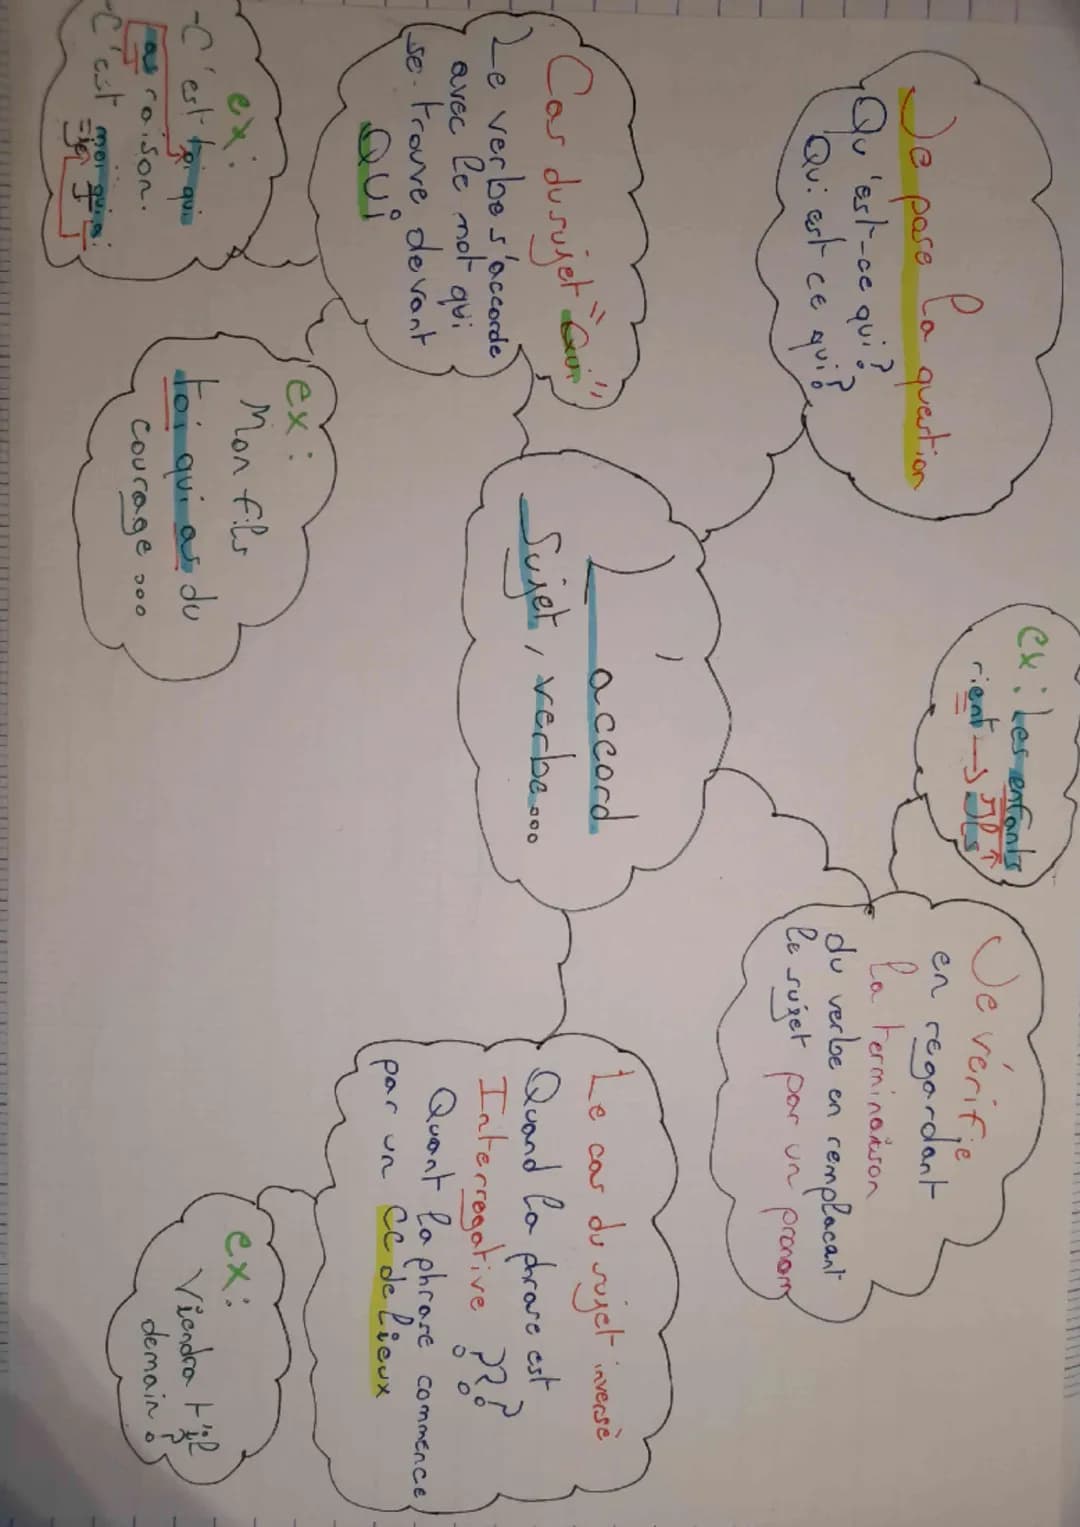 Je pose la question
Qu'est-ce qui?
Qui est ce qui?
ex: Les enfants
rient → Ils
Je vérifie
en regardant
la terminaison
du verbe en remplacant
le sujet par un pronom
L'accord
Sujet, verbe...
Cas du sujet "Qui"
Le verbe s'accorde
avec le mot qui
se trouve devant
QUi
ex:
-C'est toi qui
as raison.
-C'est moi qui ai
=je
ex:
Mon fils
toi qui as du
courage...
Le cas du sujet inversé
Quand la phrase est
Interrogative ???
Quant la phrase commence
par un CC de lieux
ex:
Viendra t'il
demain?